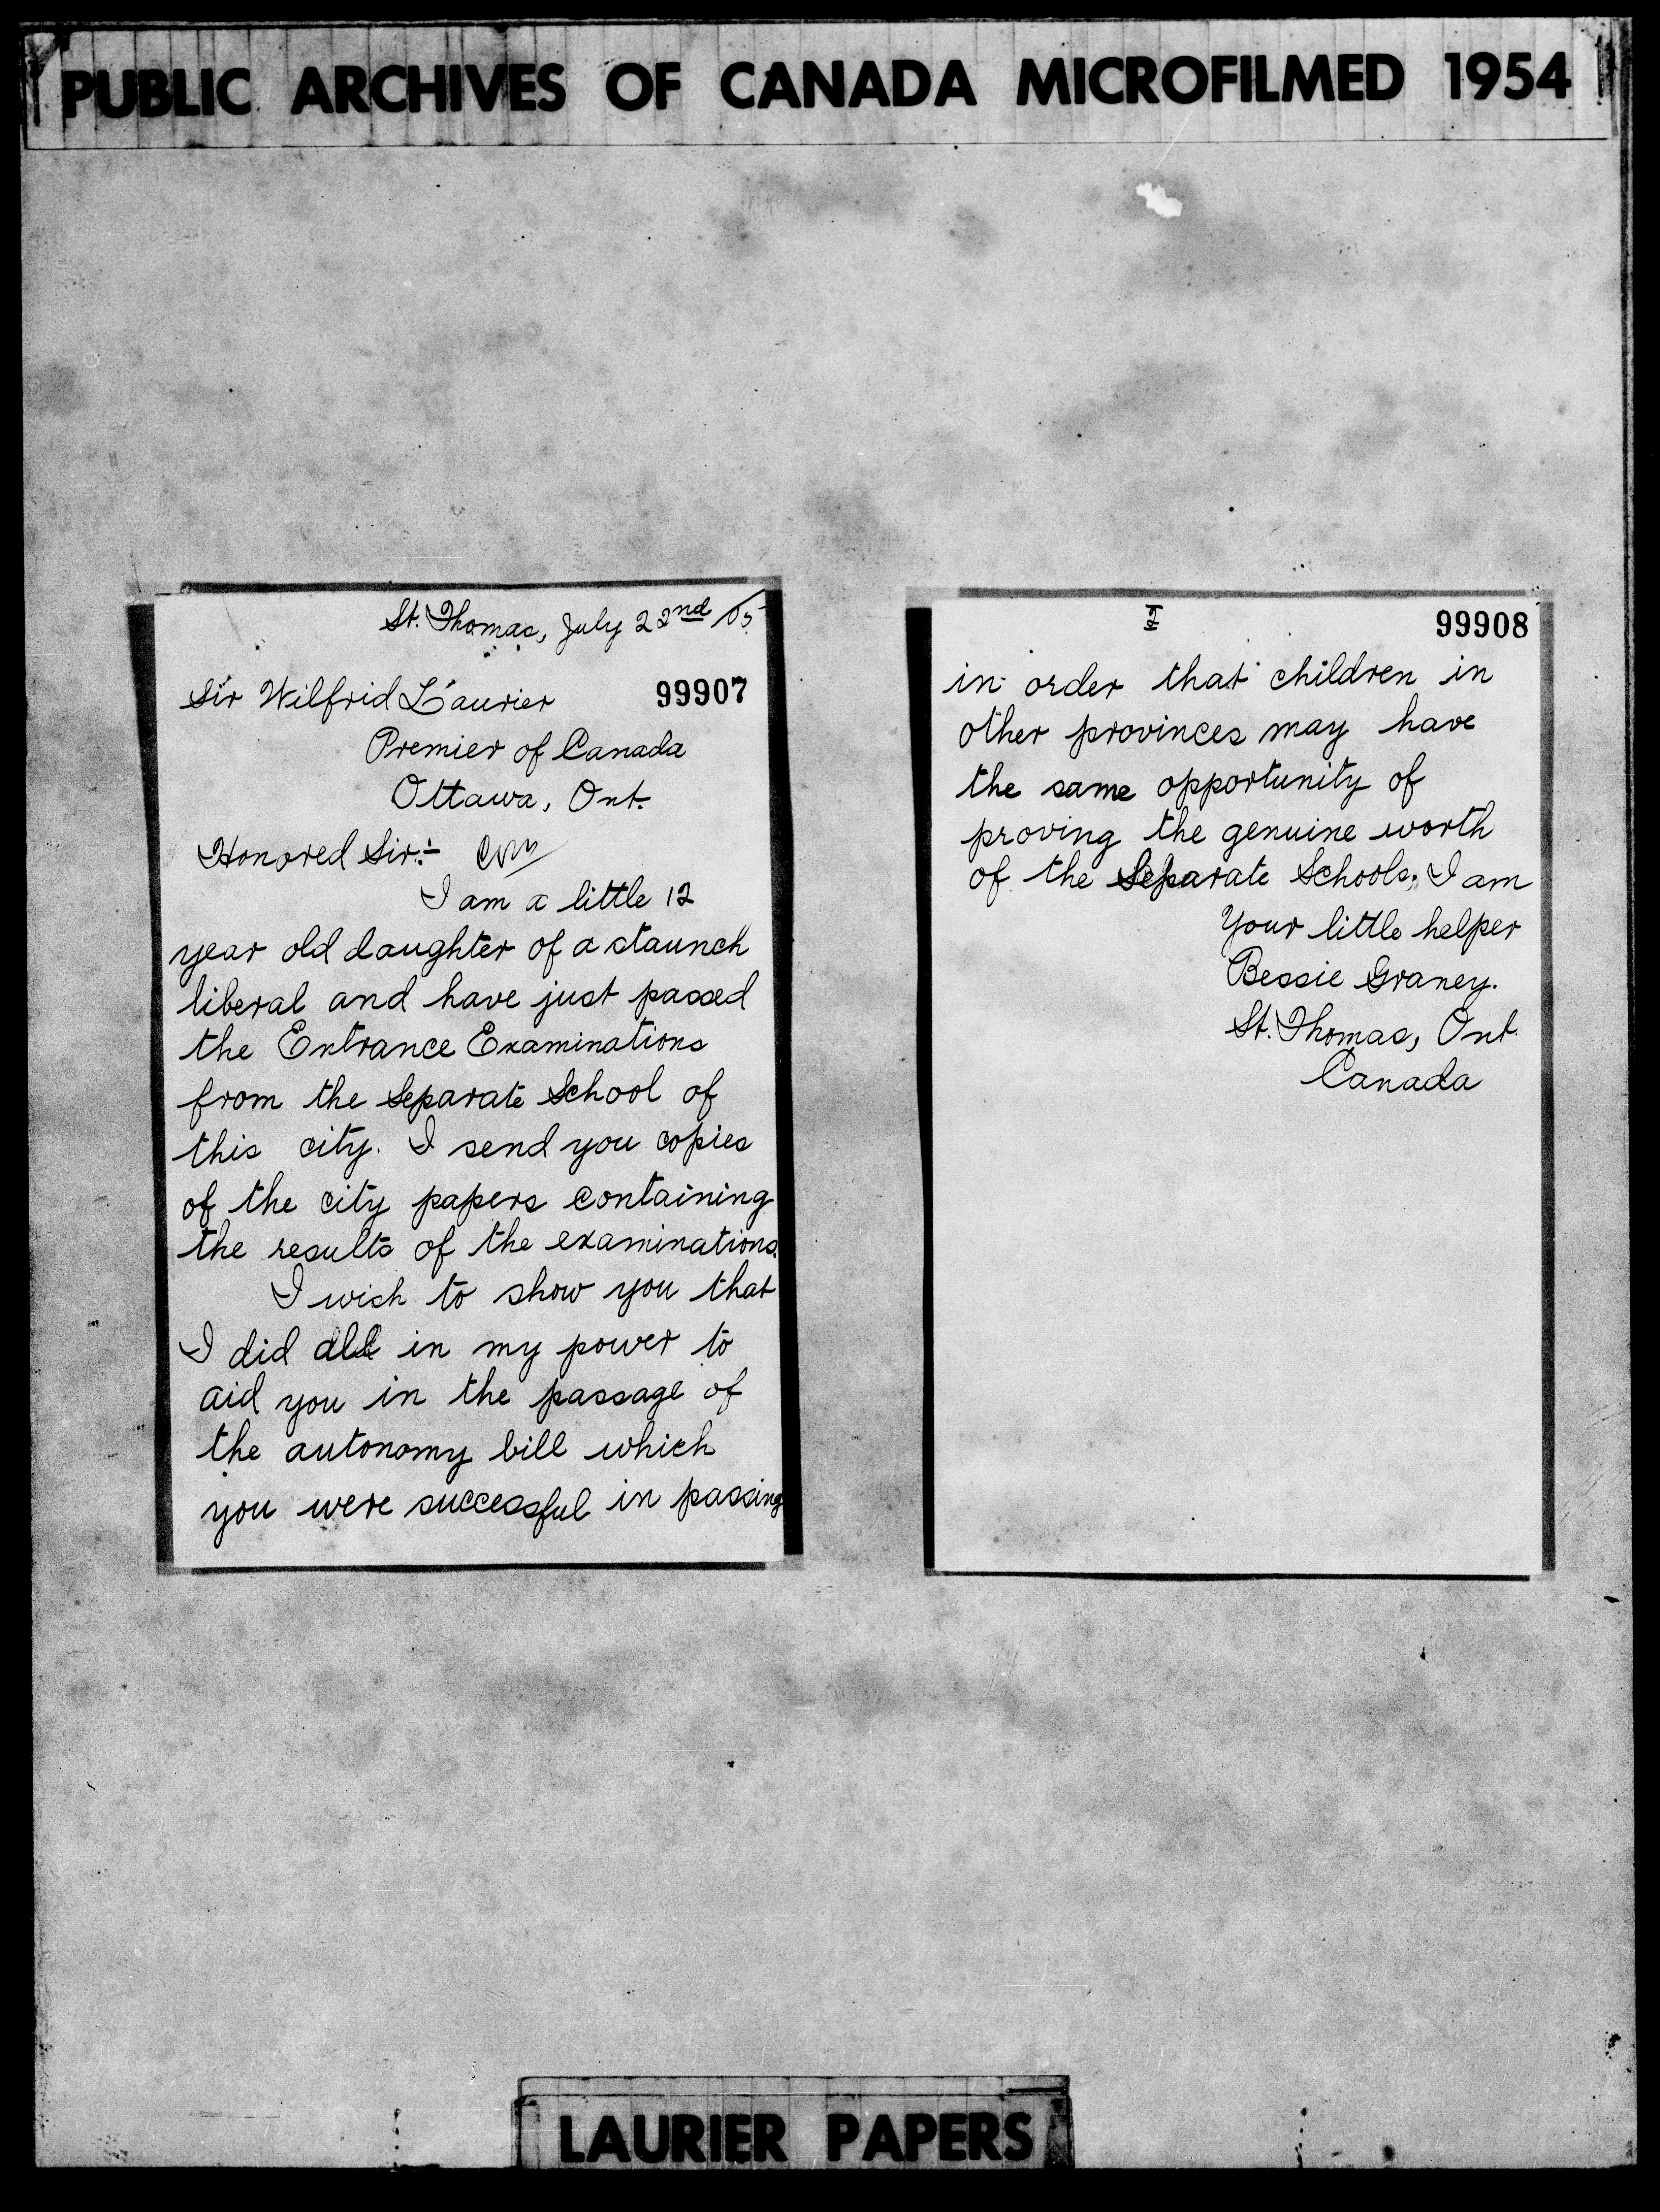 PUBLIC ARCHIVES OF CANADA MICROFILMED 1954
St. Thomas, July 22nd /05
Sir Wilfrid Laurier
99907
Premier of Canada
Ottawa, Ont.
Honored Sir:-
I am a little 12
year old daughter of a staunch
liberal and have just passed
the Entrance Examinations
from the Separate School of
this city. I send you copies
of the city papers containing
the results of the examinations.
I wish to show you that
I did all in my power to
aid you in the passage of
the autonomy bill which
you were successful in passing
99908
in order that children in
other provinces may have
the same opportunity of
proving the genuine worth
of the Separate Schools. I am
Your little helper
Bessie Graney.
St. Thomas, Ont.
Canada
LAURIER PAPERS